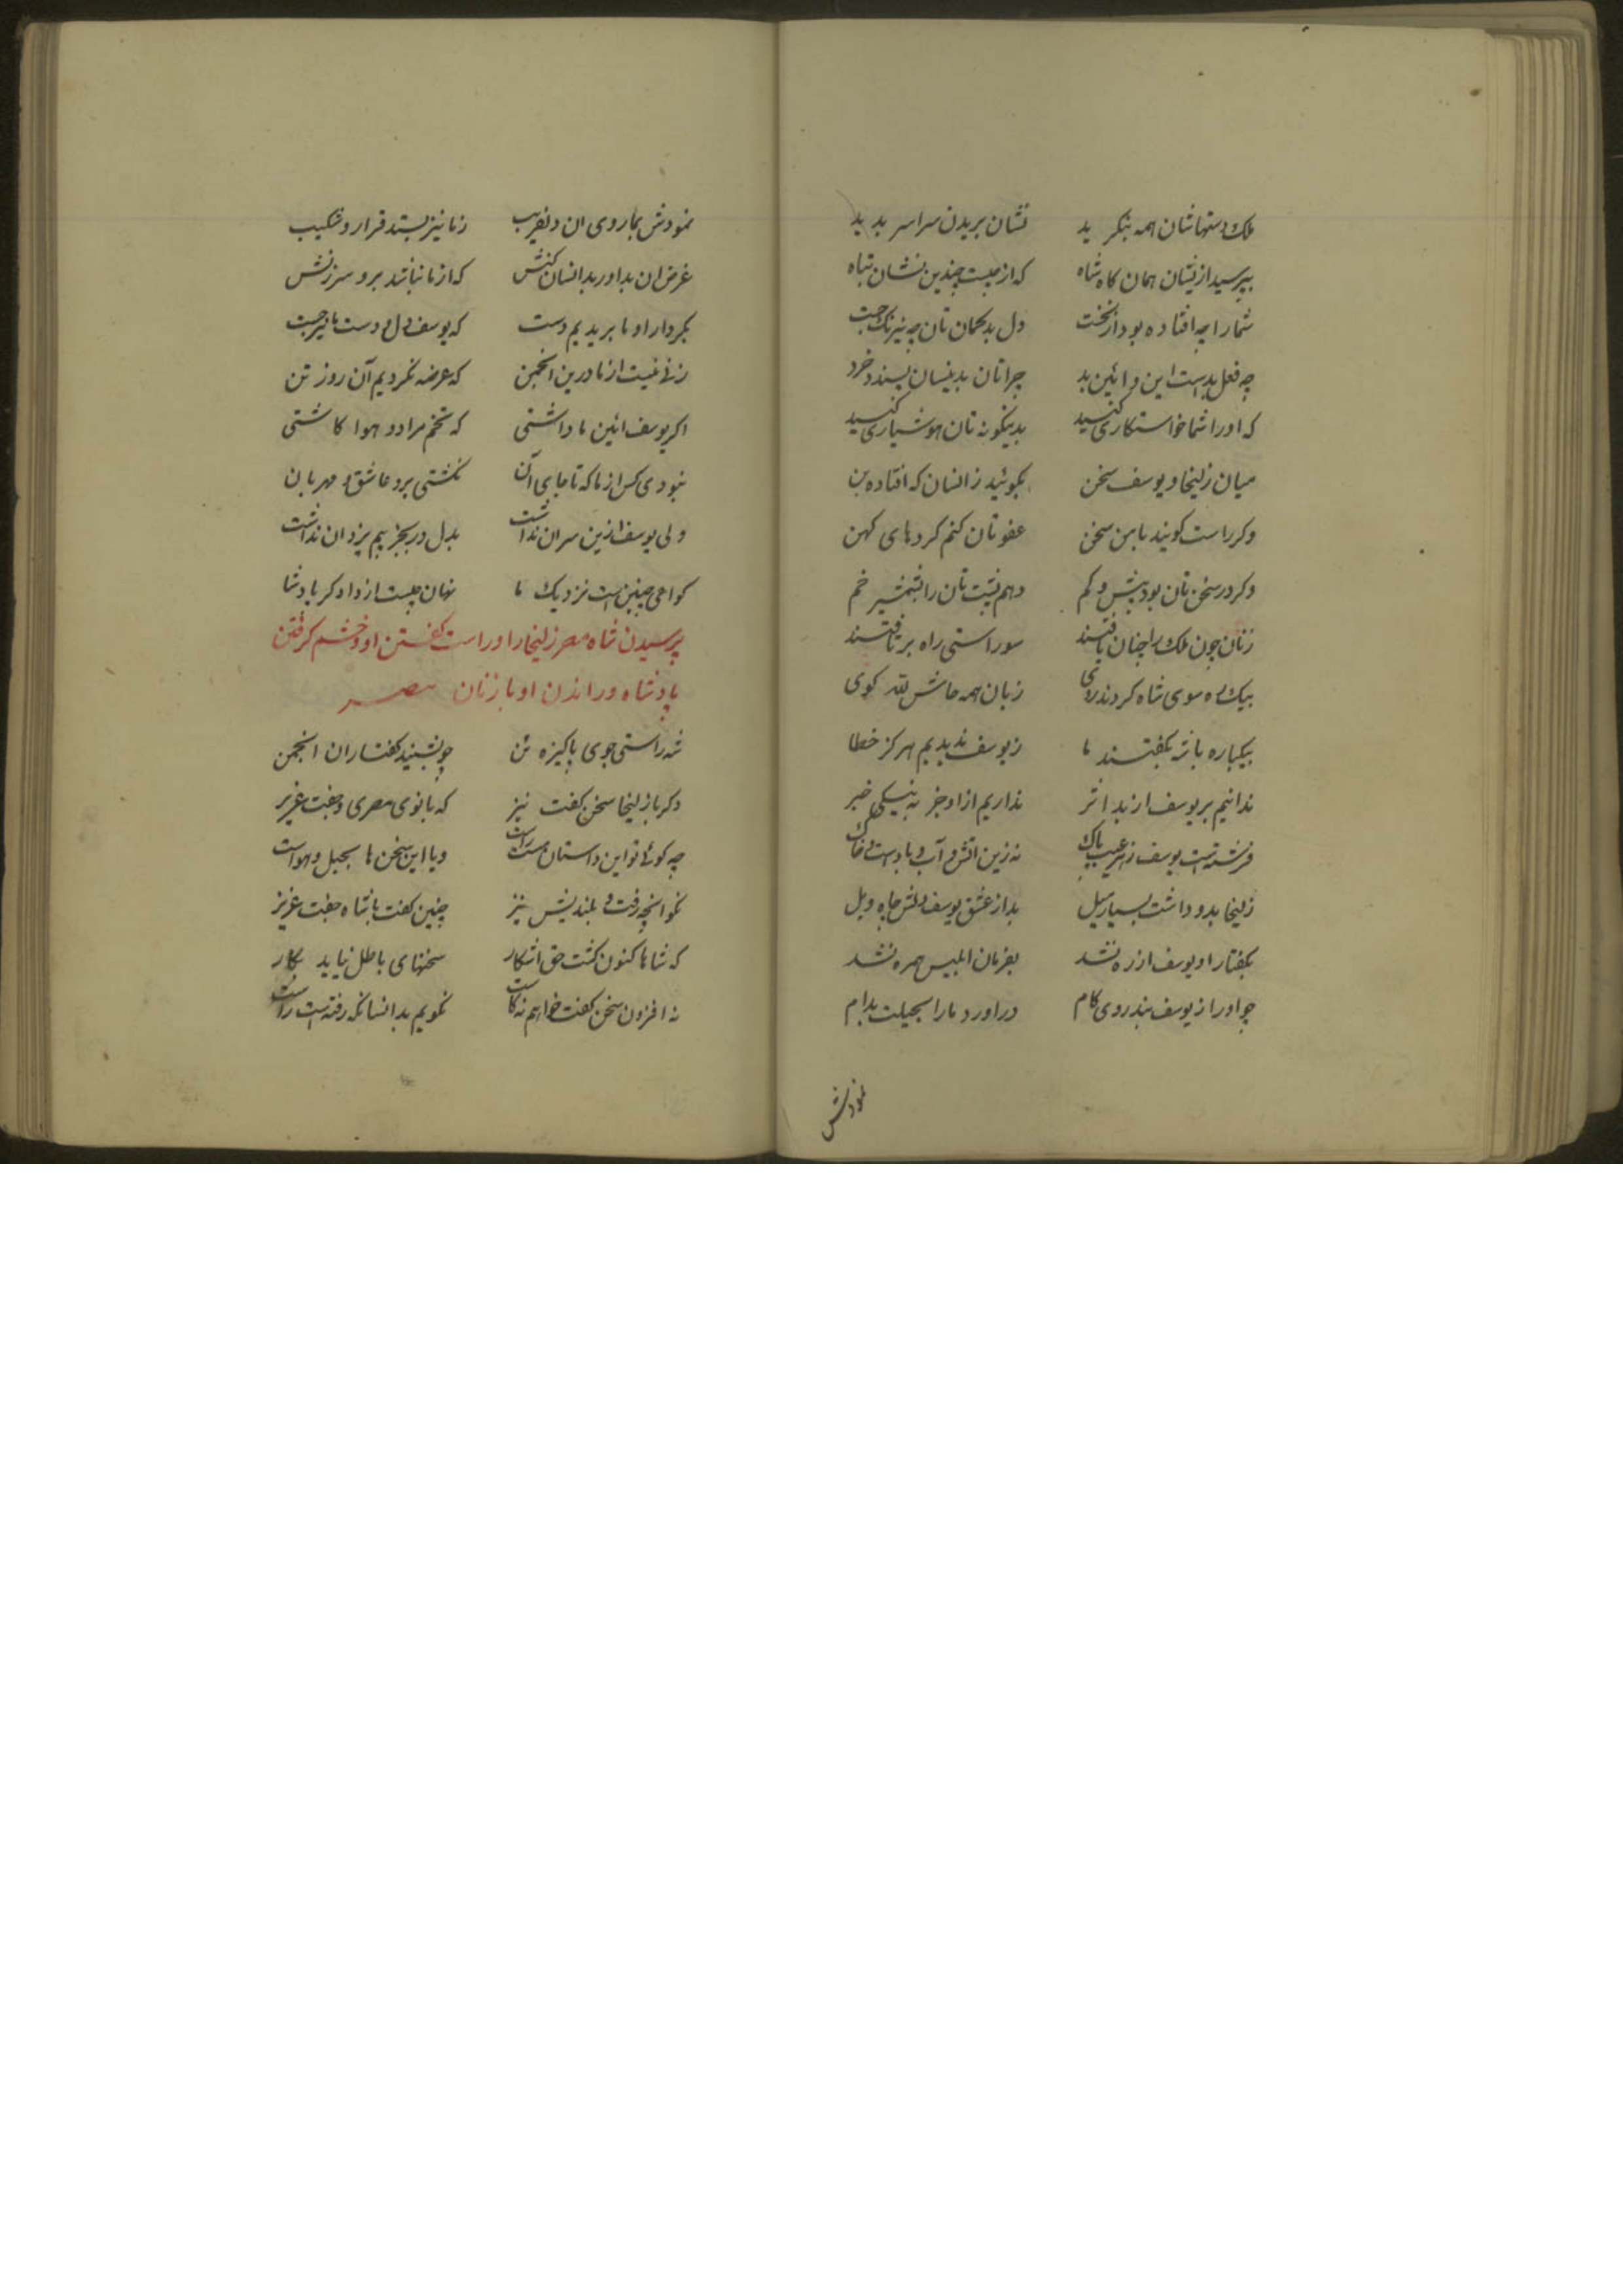 ملک دستهاشان همه بنکرید نشان بریدن سراسر بدید
بپرسید ازیشان همان کاه شاه که از چیست چندین نشان تباه
شما را چه افتاده بود از نخست دل بدکمان تان چه نیرنک جست
چه فعل بدست این و ائین بد چرا تان بدینسان پسندد خرد
که او را شما خواستکاری کنید بدینکونه تان هوشیاری کنید
میان زلیخا و یوسف سخن بکوئید زانسان که افتاده بن
وکر راست کوئید با من سخن عفوتان کنم کردهای کهن
وکر در سخن تان بود بیش و کم دهم پشت تان را بشمشیر خم
زنان چون ملک را چنان یافتند سوی راستی راه برتافتند
بیک ره سوی شاه کردند روی زبان همه حاش لله کوی
بیکباره با شه بکفتند ما ز یوسف ندیدیم هرکز خطا
ندانیم بر یوسف از بد اثر نداریم از او جز به نیکی خبر
فرشته است یوسف ز هر عیب پاک نه زین اتش و آب و بادست و خاک
زلیخا بدو داشت بسیار میل بد از عشق یوسف دلش چاه ویل
بکفتار او یوسف از ره نشد بفرمان ابلیس همره نشد
چو او را ز یوسف نبد روی کام دراورد ما را بحیلت بدام
نمودش
نمودش بما روی ان دلفریب ز ما نیز بستد قرار و شکیب
غرض ان بد او را بدانسان کنش که از ما نباشد برو سرزنش
بکردار او ما بریدیم دست که یوسف دل و دست ما نیز خست
زنی نیست از ما درین انجمن که عرضه نکردیم آن روز تن
اکر یوسف ائین ما داشتی که تخم مراد و هوا کاشتی
نبودی کس از ما که تا جای آن نکشتی برو عاشق و مهربان
ولی یوسف از این سر ان نداشت بدل در بجز بیم یزدان نداشت
کواهی چنین است نزدیک ما نهان چیست از دادکر پادشا
پرسیدن شاه مصر زلیخا را و راست کفتن او و خشم کرفتن
پادشاه و راندن او با زنان مصر
شه راستی جوی پاکیزه تن چو بشنید کفتار ان انجمن
دکر با زلیخا سخن کفت نیز که بانوی مصری و جفت عزیز
چه کوئی تو این داستان هست راست و یا این سخن ها بجهل و هواست
نکو انچه رفت و بلندیش نیز چنین کفت با شاه جفت عزیز
که شاها کنون کشت حق اشکار سخنهای باطل نیاید بکار
نه افزون سخن کفت خواهم نه کاست نکویم بد انسانکه رفته است راست